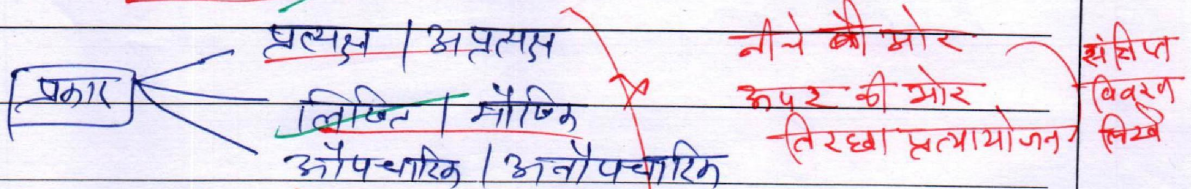 प्रत्यक्ष | अप्रत्यक्ष
प्रकार
लिखित | मौखिक
औपचारिक | अनौपचारिक
नीचे की ओर
ऊपर की ओर
तिरछा प्रत्यायोजन
संक्षिप्त
विवरण
लिखें